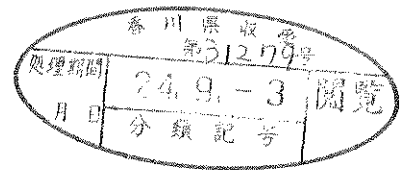 香川県収受
第31279号
処理期間
24. 9. -3
閲覧
月 日
分類記号